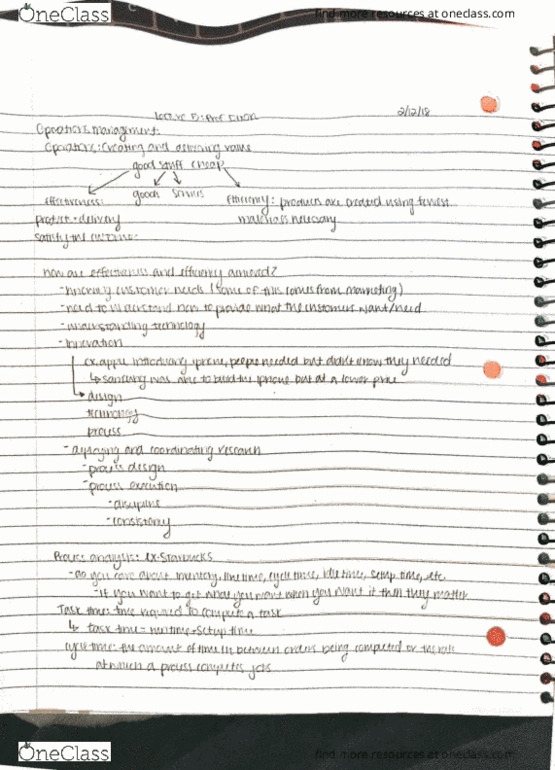 OneClass
find more resources at oneclass.com
Lecture 5: Prof
2/12/18
Operations management:
Operations: Creating and delivering value
good stuff cheap
effectiveness: goods services Efficiency: products are created using fewest
product + delivery materials necessary
satisfy the customer
How are effectiveness and efficiency achieved?
-knowing customer needs (some of this comes from marketing)
-need to understand how to provide what the customers want/need
-understanding technology
-innovation
ex. apple introducing iphone, people needed but didn't know they needed
↳ samsung was able to build the iphone but at a lower price
design
technology
process
-applying and coordinating research
-process design
-process execution
-discipline
-consistency
Process analysis: ex-Starbucks
-do you care about inventory, line times, cycle times, idle times, setup time, etc.
-if you want to get what you want when you want it then they matter
Task time: time required to complete a task
↳ task time = run time + setup time
cycle time: the amount of time in between orders being completed or the rate
at which a process completes jobs
OneClass
find more resources at oneclass.com